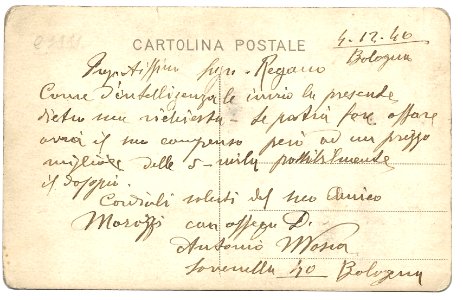 CARTOLINA POSTALE
4-12-40
Bologna
Sen. Regano
Come d'intelligenza le invio la presente
dietro sua richiesta - Se potrà fare affare
avrà il suo compenso però ad un prezzo
migliore delle 5-mila possibilmente
il doppio.
Cordiali saluti del suo Amico
con ossequi D.
Antonio
40 Bologna